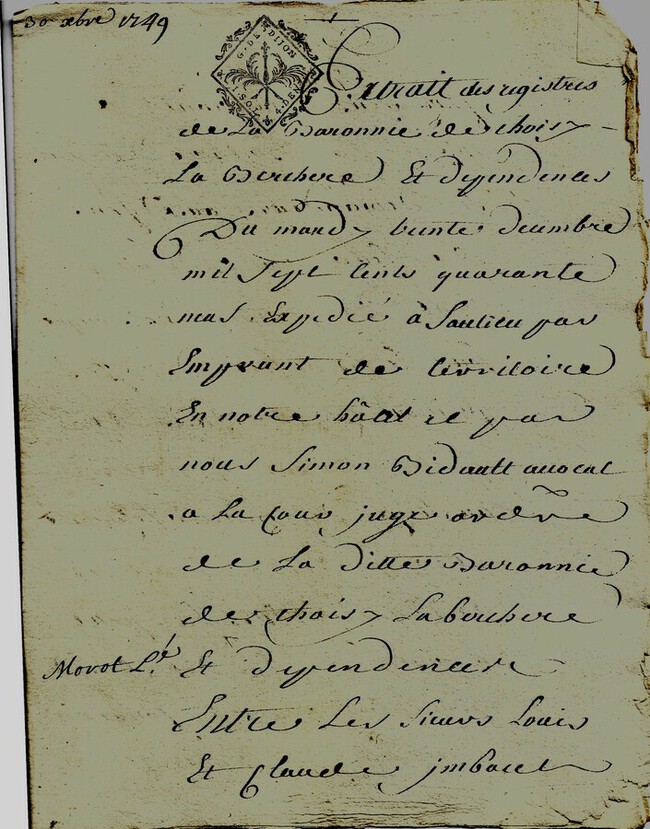 30 xbre 1749
G. DE DIJON
1 SOL 4 DE.
Extrait des registres
de La Baronnie de Choisy
La Berchere Et dependences
Du mardy trente decembre
mil Sept Cents quarante
neuf Expedié à Saulieu par
Emprunt de territoire
En notre hôtel et par
nous Simon Bidault avocat
a La Cour juge ordre
de La Ditte Baronnie
de Choisy Laberchere
Morot Lé Et dependences
Entre Les Sieurs Louis
Et Claude